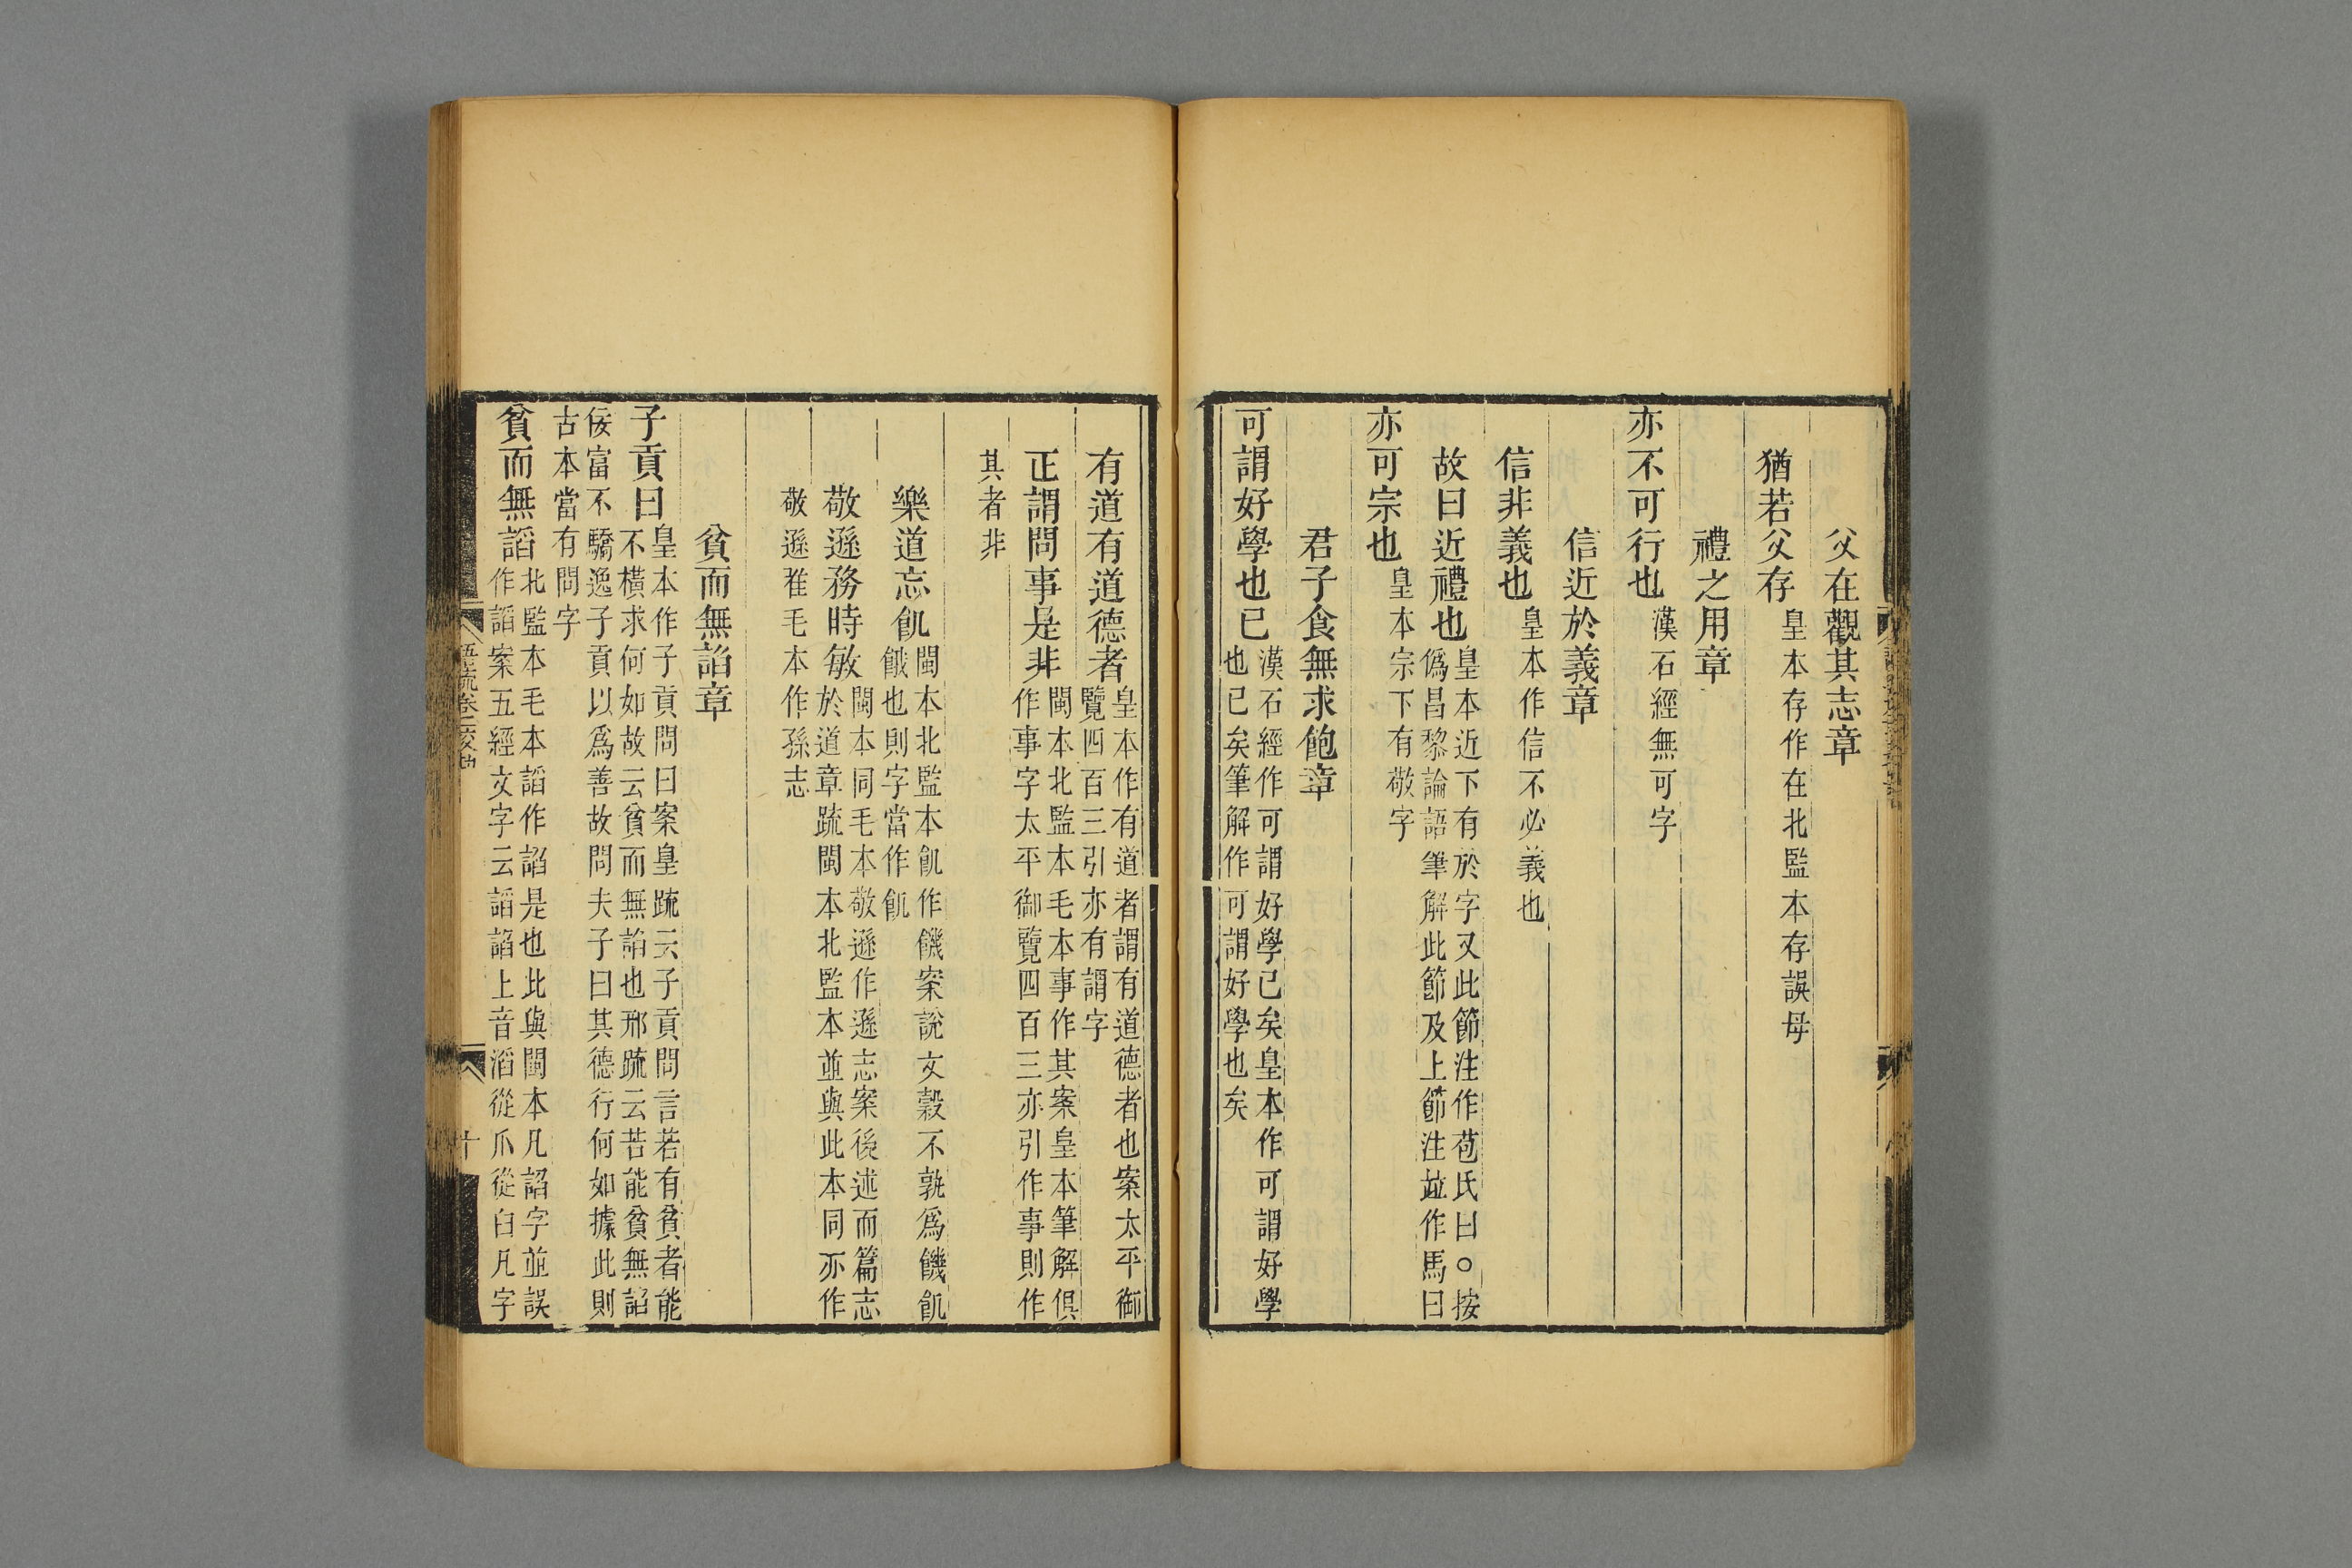 父在觀其志章
猶若父存皇本存作在北監本存誤母
禮之用章
亦不可行也漢石經無可字
信近於義章
信非義也皇本作信不必義也
故曰近禮也皇本近下有於字又此節注作苞氏曰○按
僞昌黎論語筆解此節及上節注竝作馬曰
亦可宗也皇本宗下有敬字
君子食無求飽章
可謂好學也已漢石經作可謂好學已矣皇本作可謂好學
也已矣筆解作可謂好學也矣
有道有道德者皇本作有道者謂有道德者也案太平御
覽四百三引亦有謂字
正謂問事是非閩本北監本毛本事作其案皇本筆解俱
作事字太平御覽四百三亦引作事則作
其者非
樂道忘飢閩本北監本飢作饑案說文穀不孰爲饑飢
餓也則字當作飢
敬遜務時敏閩本同毛本敬遜作遜志案後述而篇志
於道章疏閩本北監本並與此本同亦作
敬遜惟毛本作孫志
貧而無諂章
子貢曰皇本作子貢問曰案皇疏云子貢問言若有貧者能
不橫求何如故云貧而無諂也邢疏云若能貧無諂
佞富不驕逸子貢以爲善故問夫子曰其德行何如據此則
古本當有問字
貧而無謟北監本毛本謟作諂是也此與閩本凡諂字並誤
作謟案五經文字云謟諂上音滔從爪從臼凡字
語疏卷一校勘
十